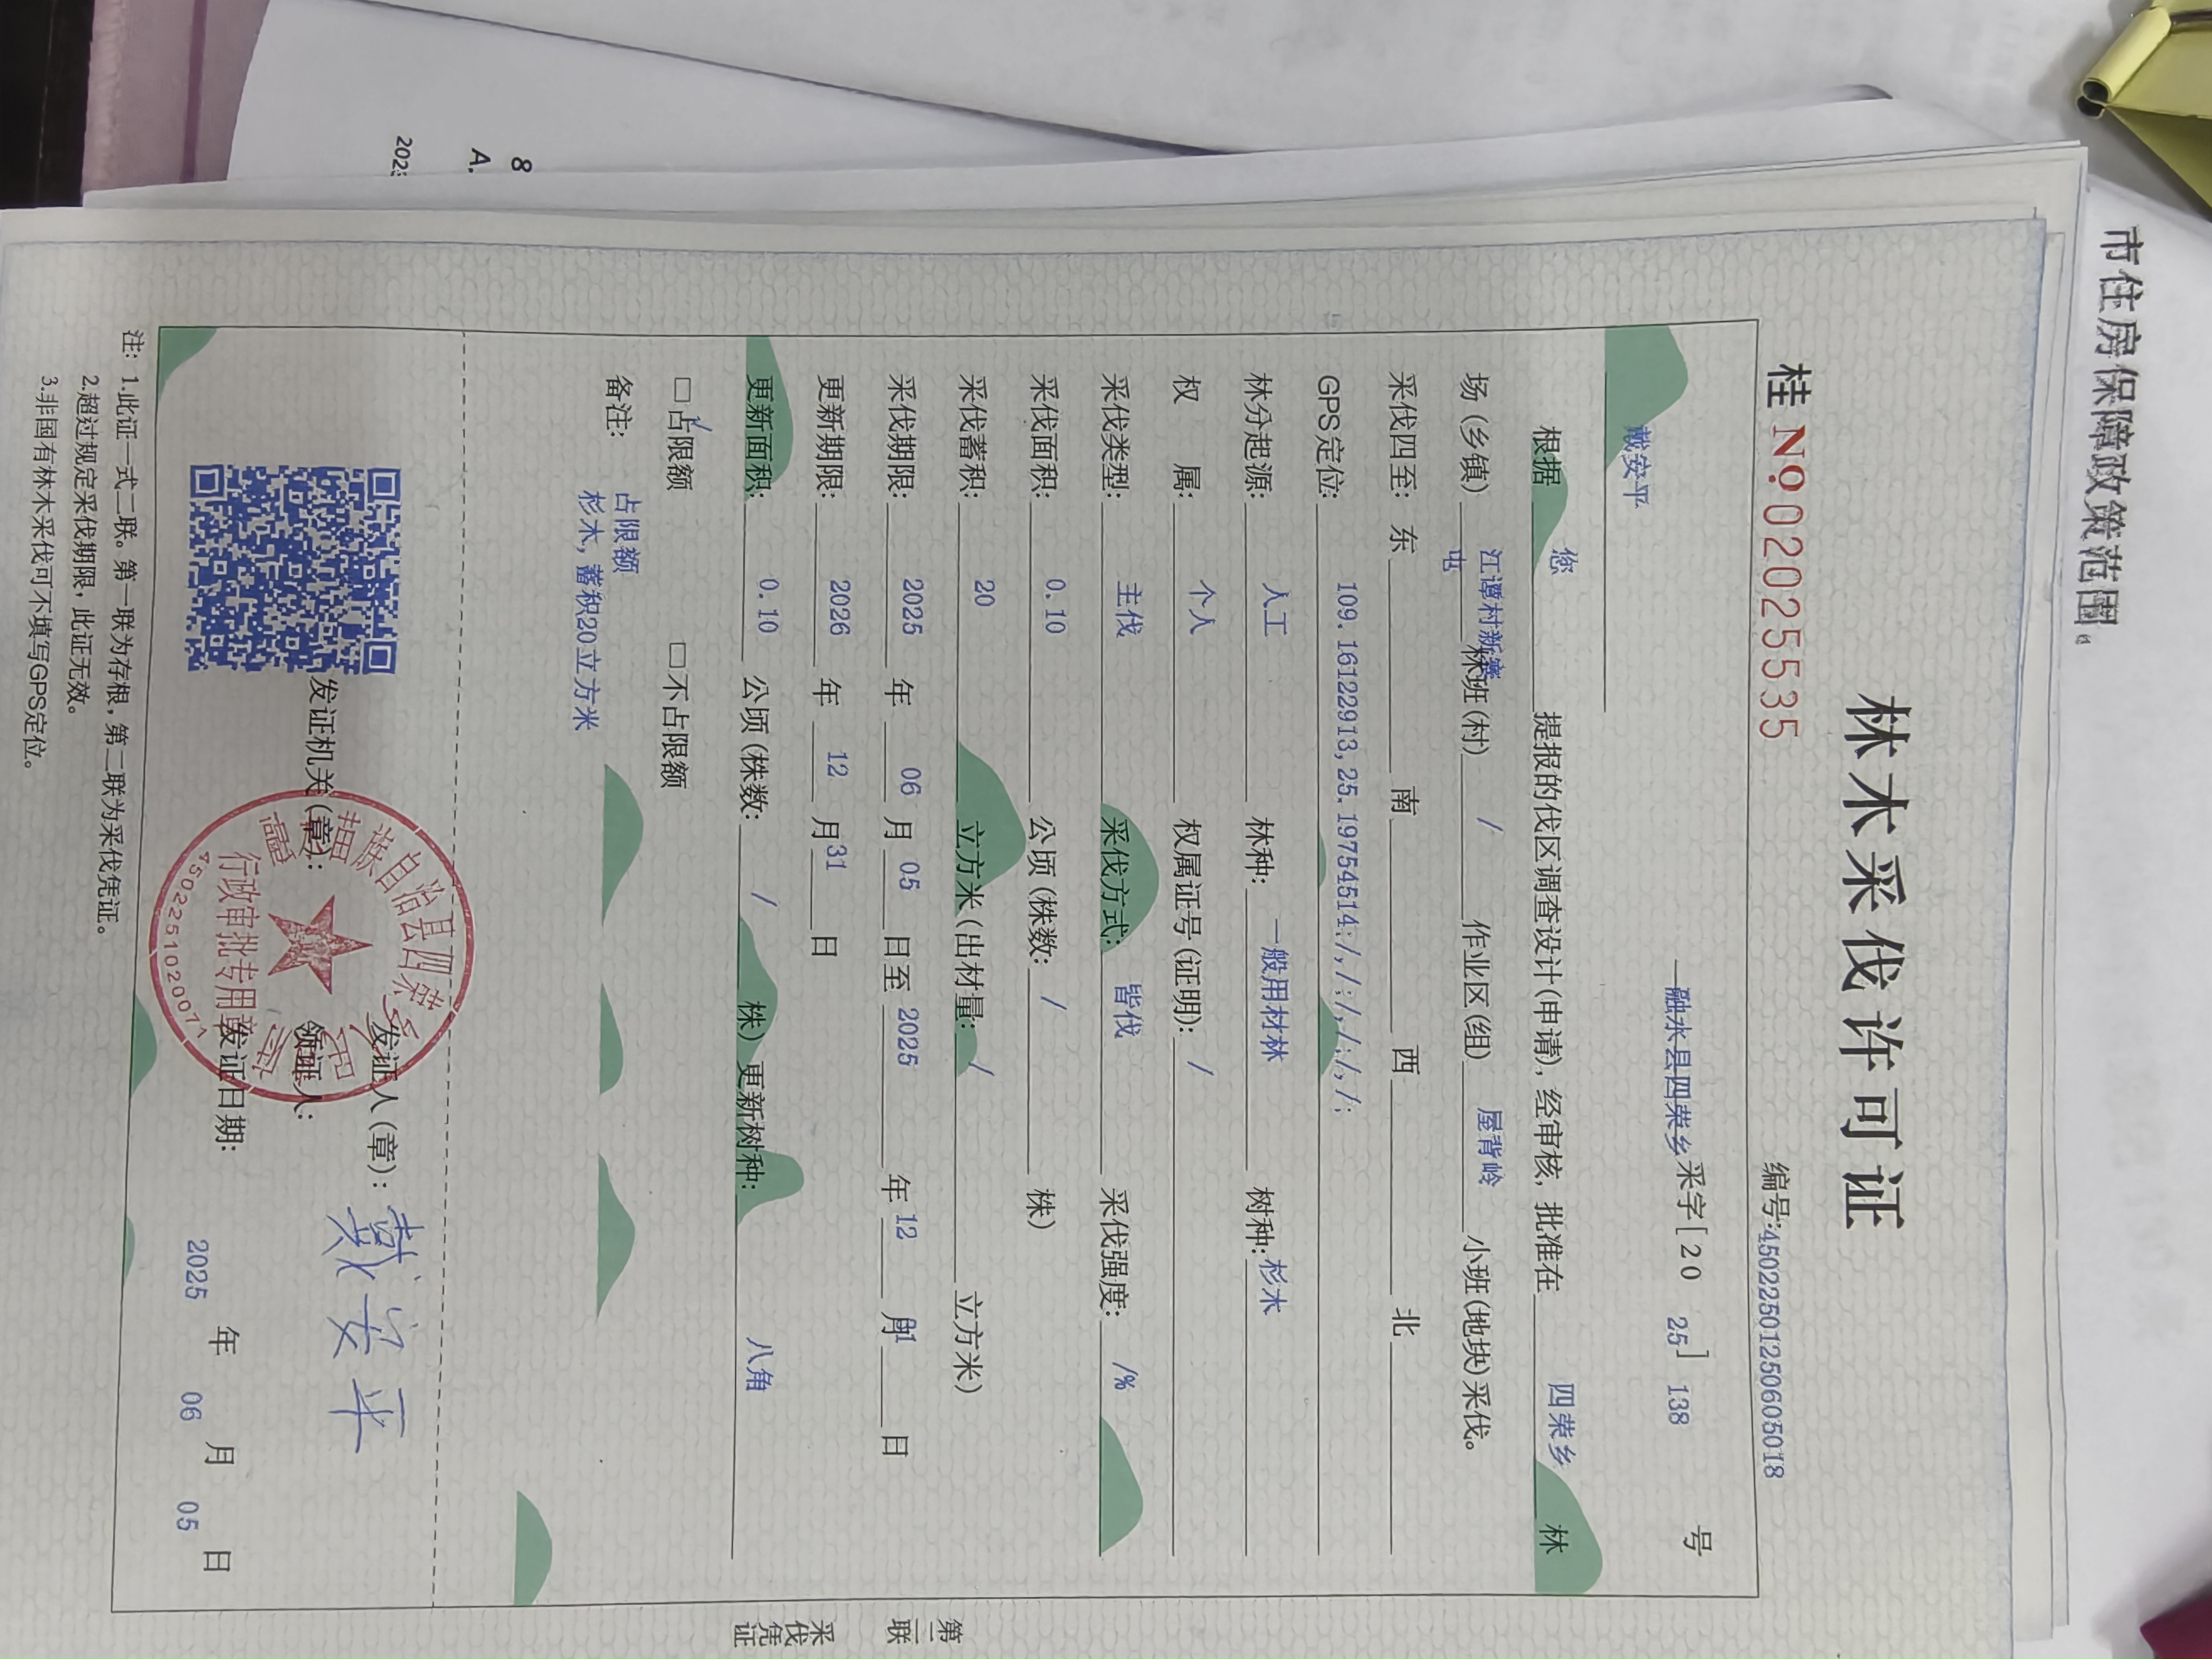 市住房保障政策范围。
8
A.
202
林木采伐许可证
桂 №02025535 编号:45022501250605018
融水县四荣乡采字[2025] 138 号
戴安平
根据 您 提报的伐区调查设计(申请)，经审核，批准在 四荣乡 林
场(乡镇) 江谭村新寨屯 林班(村) / 作业区(组) 屋背岭 小班(地块)采伐。
采伐四至：东 南 西 北
GPS定位：109.16122913,25.19754514;/,/;/,/;/,/;
林分起源：人工 林种：一般用材林 树种：杉木
权 属：个人 权属证号(证明)：/
采伐类型：主伐 采伐方式：皆伐 采伐强度：/%
采伐面积：0.10 公顷(株数：/ 株)
采伐蓄积：20 立方米(出材量：/ 立方米)
采伐期限：2025 年 06 月 05 日至 2025 年 12 月 31 日
更新期限：2026 年 12 月 31 日
更新面积：0.10 公顷(株数：/ 株) 更新树种：八角
□√占限额 □不占限额
备注：占限额
杉木，蓄积20立方米
发证机关(章)： 发证人(章)：
领证人：戴安平
发证日期：2025 年 06 月 05 日
苗族自治县四荣乡
行政审批专用章
4502251020071
注：1.此证一式二联。第一联为存根，第二联为采伐凭证。
2.超过规定采伐期限，此证无效。
3.非国有林木采伐可不填写GPS定位。
第二联 采伐凭证